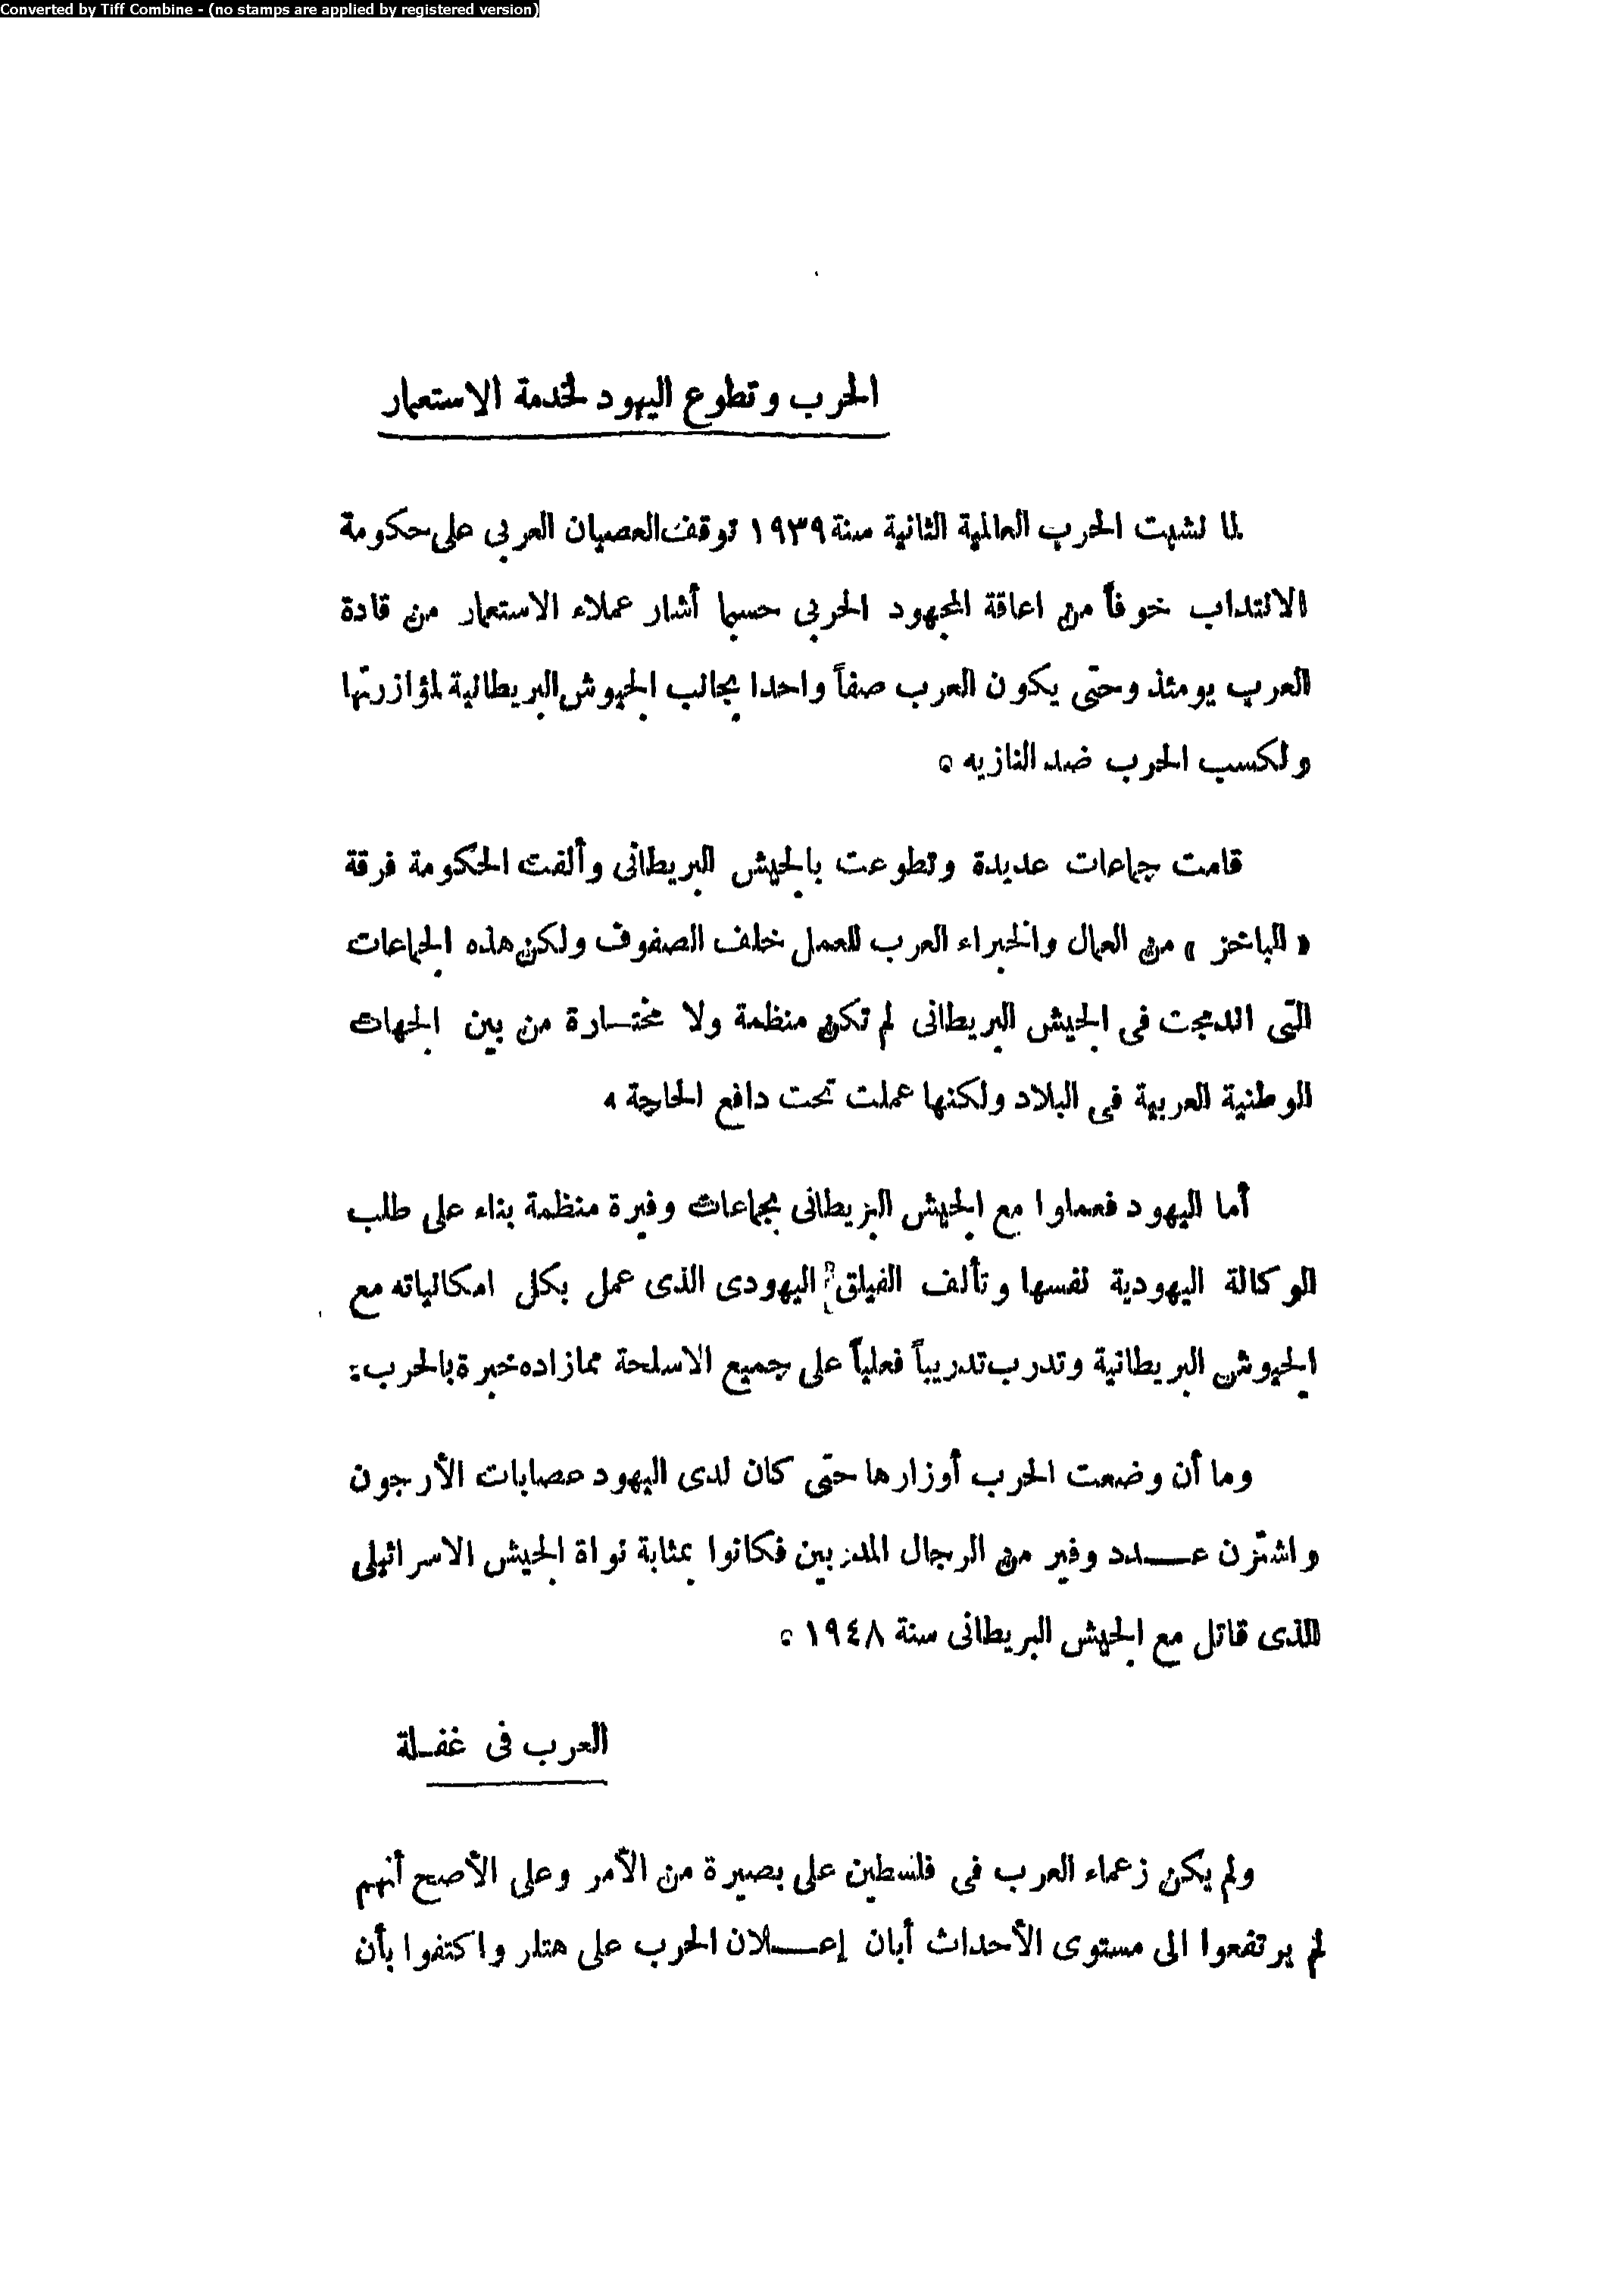 Converted by Tiff Combine - (no stamps are applied by registered version)
الحرب وتطوع اليهود لخدمة الاستعمار
لما نشبت الحرب العالمية الثانية سنة ١٩٣٩ توقف العصيان العربى على حكومة
الانتداب خوفاً من اعاقة المجهود الحربى حسبما أشار عملاء الاستعمار من قادة
العرب يومئذ وحتى يكون العرب صفاً واحدا بجانب الجيوش البريطانية لمؤازرتها
ولكسب الحرب ضد النازيه .
قامت جماعات عديدة وتطوعت بالجيش البريطانى وألفت الحكومة فرقة
« الباخز » من العمال والخبراء العرب للعمل خلف الصفوف ولكن هذه الجماعات
التى اندمجت فى الجيش البريطانى لم تكن منظمة ولا مختـارة من بين الجهات
الوطنية العربية فى البلاد ولكنها عملت تحت دافع الحاجة .
أما اليهود فعملوا مع الجيش البريطانى بجماعات وفيرة منظمة بناء على طلب
الوكالة اليهودية نفسها وتألف الفيلق اليهودى الذى عمل بكل امكانياته مع
الجيوش البريطانية وتدرب تدريباً فعلياً على جميع الاسلحة مما زاده خبرة بالحرب .
وما أن وضعت الحرب أوزارها حتى كان لدى اليهود عصابات الأرجون
واشتزن عـــدد وفير من الرجال المدربين فكانوا بمثابة نواة الجيش الاسرائيلى
الذى قاتل مع الجيش البريطانى سنة ١٩٤٨ .
العرب فى غفـلة
ولم يكن زعماء العرب فى فلسطين على بصيرة من الأمر وعلى الأصح أنهم
لم يرتفعوا الى مستوى الأحداث أبان إعـــلان الحرب على هتلر واكتفوا بأن